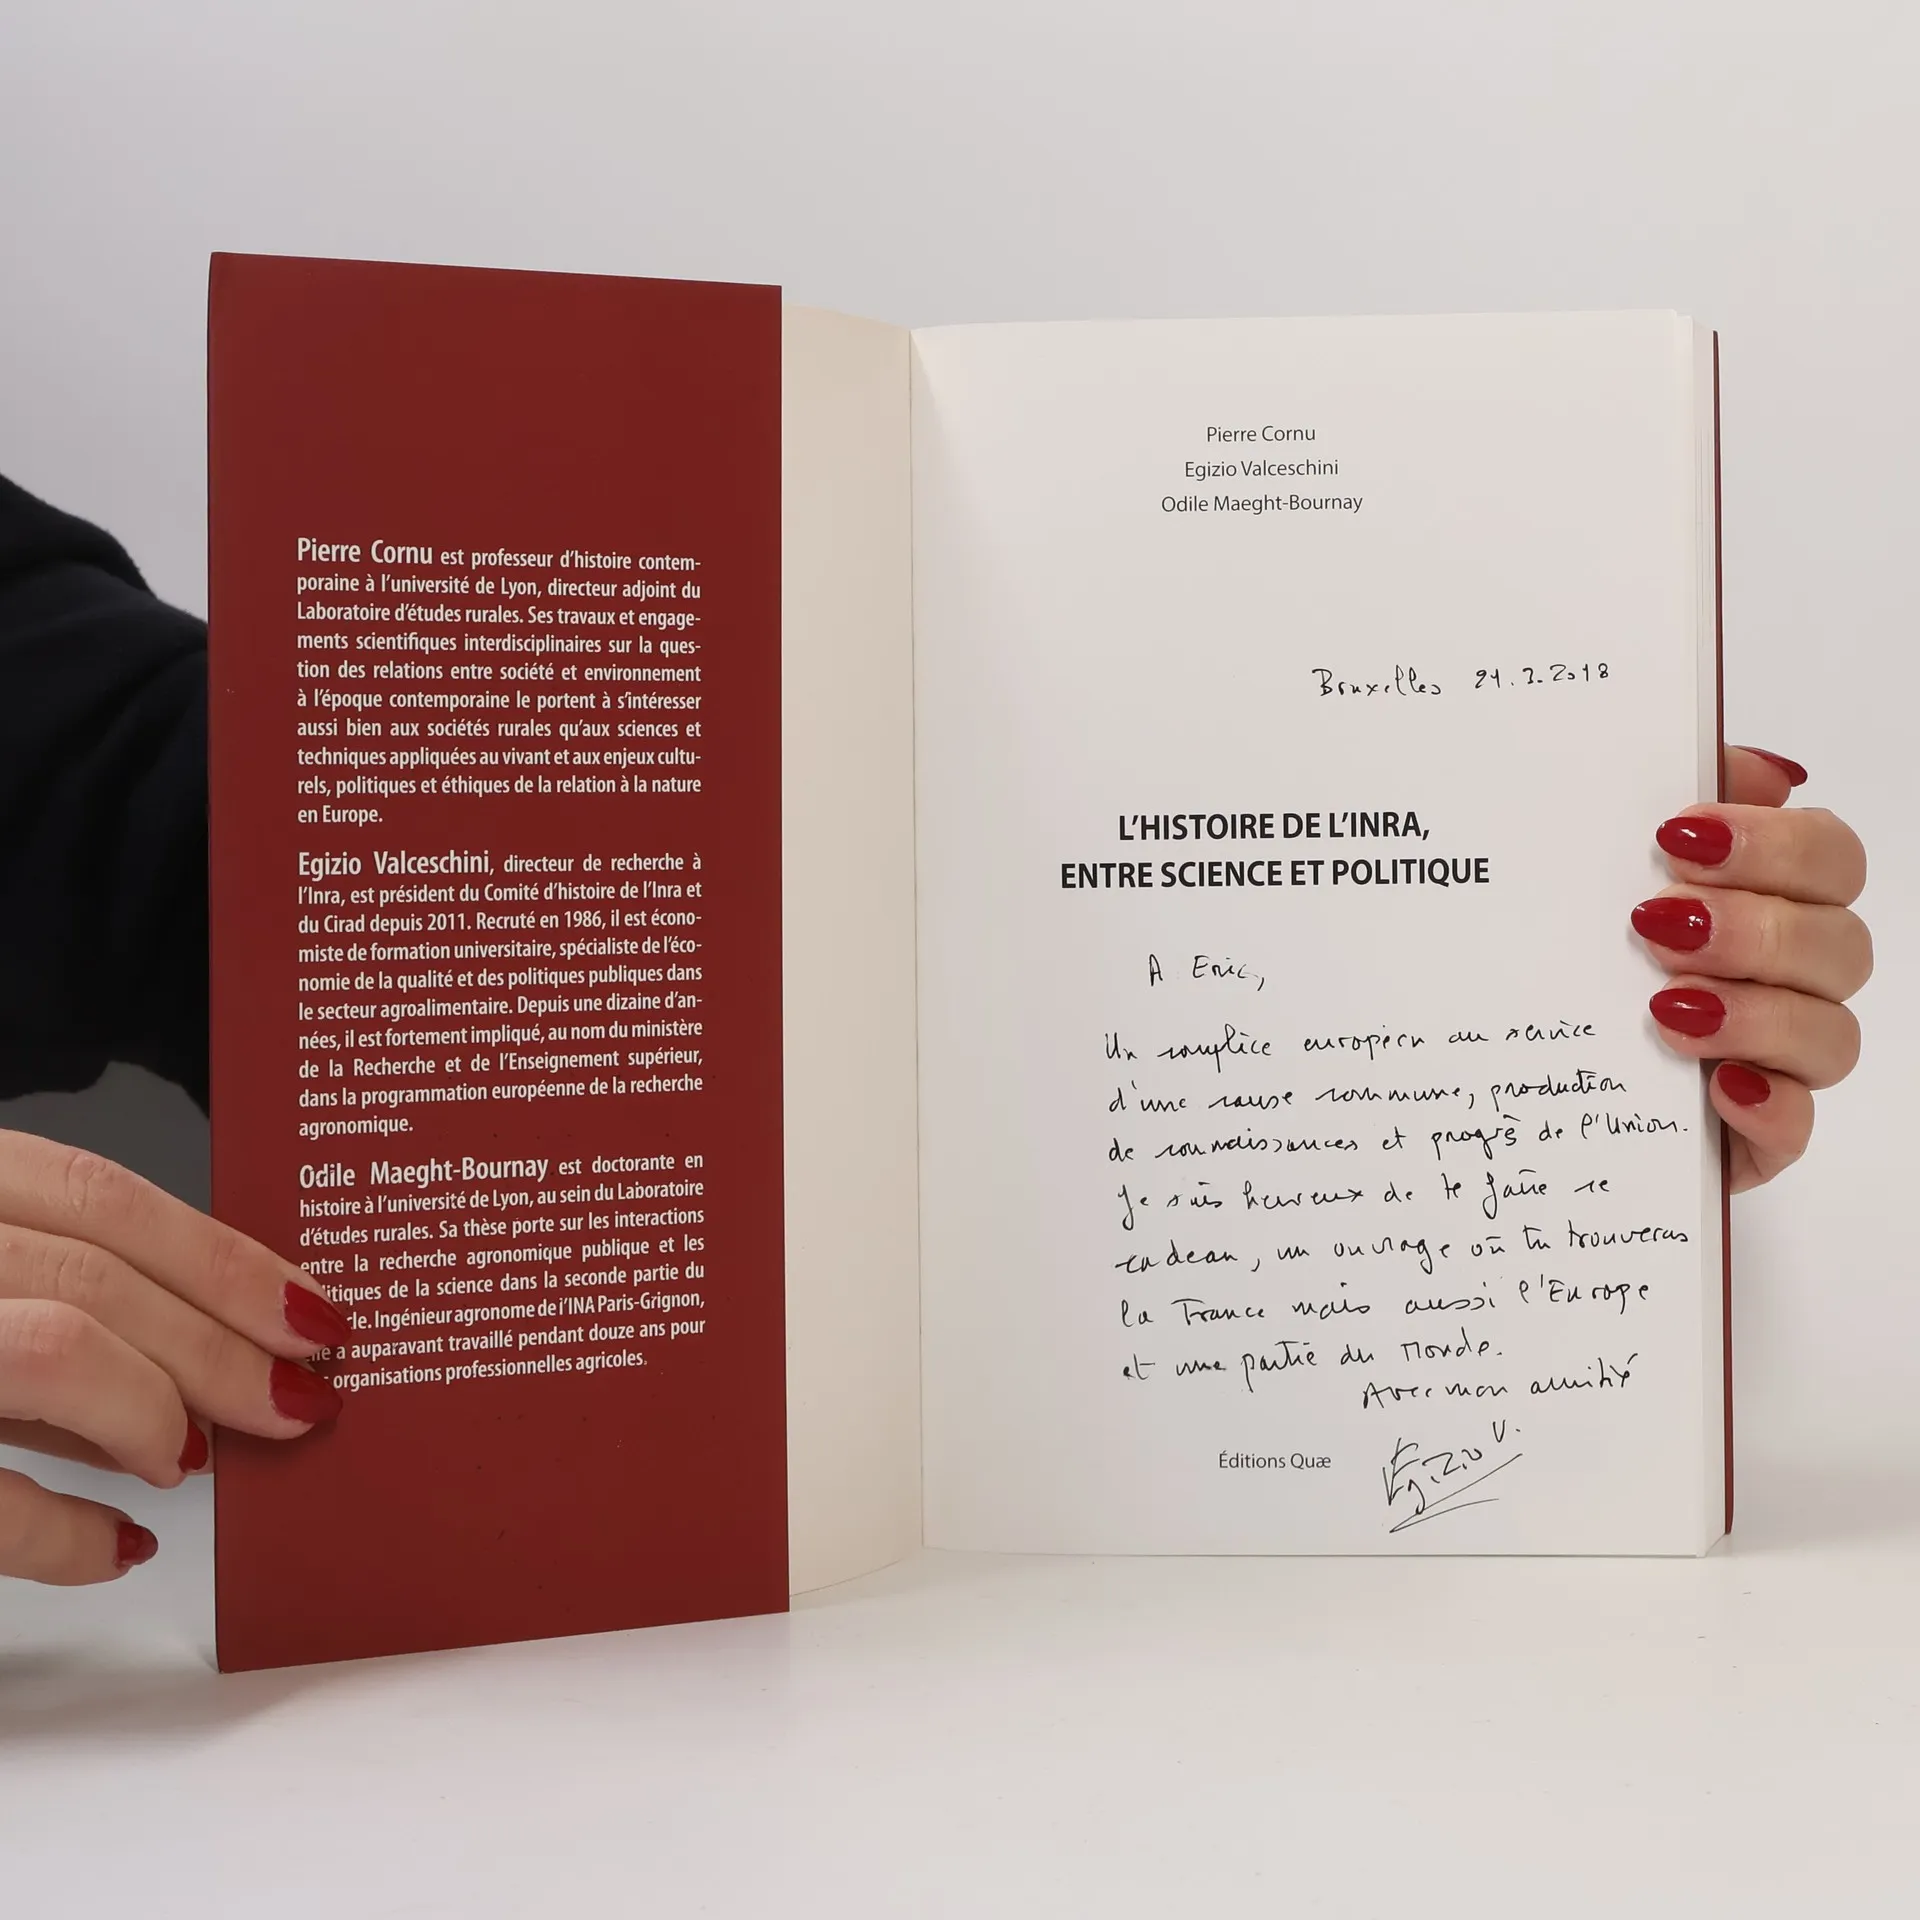 Pierre Cornu est professeur d'histoire contem-
poraine à l'université de Lyon, directeur adjoint du
Laboratoire d'études rurales. Ses travaux et engage-
ments scientifiques interdisciplinaires sur la ques-
tion des relations entre société et environnement
à l'époque contemporaine le portent à s'intéresser
aussi bien aux sociétés rurales qu'aux sciences et
techniques appliquées au vivant et aux enjeux cultu-
rels, politiques et éthiques de la relation à la nature
en Europe.
Egizio Valceschini, directeur de recherche à
l'Inra, est président du Comité d'histoire de l'Inra et
du Cirad depuis 2011. Recruté en 1986, il est écono-
miste de formation universitaire, spécialiste de l'éco-
nomie de la qualité et des politiques publiques dans
le secteur agroalimentaire. Depuis une dizaine d'an-
nées, il est fortement impliqué, au nom du ministère
de la Recherche et de l'Enseignement supérieur,
dans la programmation européenne de la recherche
agronomique.
Odile Maeght-Bournay est doctorante en
histoire à l'université de Lyon, au sein du Laboratoire
d'études rurales. Sa thèse porte sur les interactions
entre la recherche agronomique publique et les
litiques de la science dans la seconde partie du
cle. Ingénieur agronome de l'INA Paris-Grignon,
elle a auparavant travaillé pendant douze ans pour
organisations professionnelles agricoles.
Pierre Cornu
Egizio Valceschini
Odile Maeght-Bournay
Bruxelles 21.3.2018
L'HISTOIRE DE L'INRA,
ENTRE SCIENCE ET POLITIQUE
A Eric,
Un complice européen au service
d'une cause commune, production
de connaissances et progrès de l'Union.
Je suis heureux de te faire ce
cadeau, un ouvrage où tu trouveras
la France mais aussi l'Europe
et une partie du Monde.
Avec mon amitié
Éditions Quæ
Egizio V.